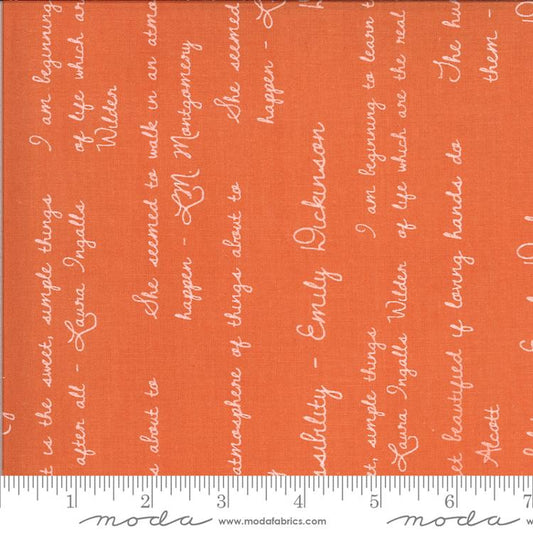 t is the sweet, simple things I am beginning
after all - Laura Ingalls of life which ar
Wilder
s about to She seemed to walk in an atmo
happen - L.M. Montgomery
atmosphere of things about to She seemed
happen - L
ssibility - Emily Dickinson
et, simple things I am beginning to learn t
Laura Ingalls Wilder of life which are the real
et beautified if loving hands do The hu
Alcott them -
1 2 3 4 5 6 7
moda www.modafabrics.com